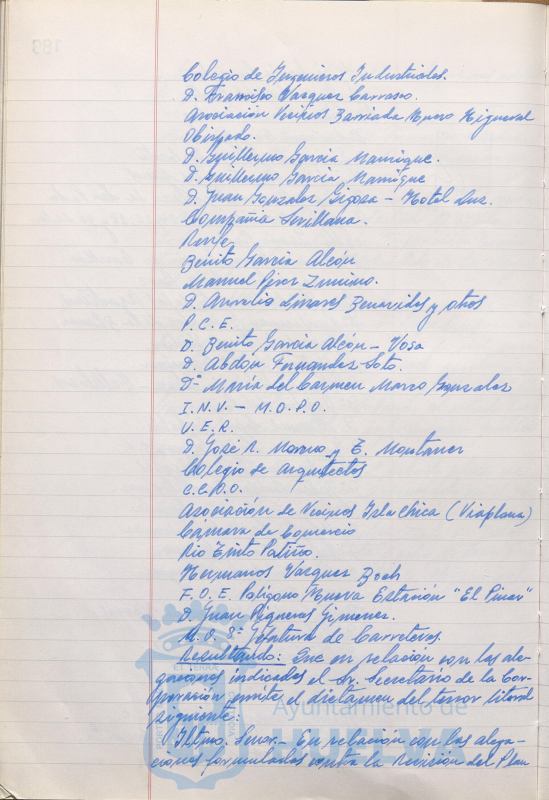 189
Colegio de Ingenieros Industriales.
D. Francisco Vazquez Carrasco.
Asociación Vecinos Barriada Nuevo Higueral
Obispado.
D. Guillermo Garcia Manrique.
D. Guillermo Garcia Manrique
D. Juan Gonzalez Gigosa - Hotel Luz.
Compañia Sevillana.
Renfe
Benito Garcia Alcón
Manuel Pérez
D. Aurelio Linares Benavides y otros
P.C.E.
D. Benito Garcia Alcón - Vosa
D. Abdón Fernandez-Soto.
Dª María del Carmen Marzo Gonzalez
I.N.V. - M.O.P.U.
U.E.R.
D. José R. Moreno y E. Montaner
Colegio de Arquitectos
CC.OO.
Asociación de Vecinos Isla Chica (Viaplana)
Cámara de Comercio
Rio Tinto Patiño.
Hermanos Vazquez Boch
F.O.E. Polígono Nueva Estación "El Pinar"
D. Juan Gimenez.
M.O. 8ª Jefatura de Carreteras.
Resultando: Que en relación con las ale-
gaciones indicadas el Sr. Secretario de la Cor-
poración emite el dictamen del tenor literal
siguiente:
Iltmo. Señor.- En relación con las alega-
ciones formuladas contra la Revisión del Plan
Ayuntamiento de
HUELVA